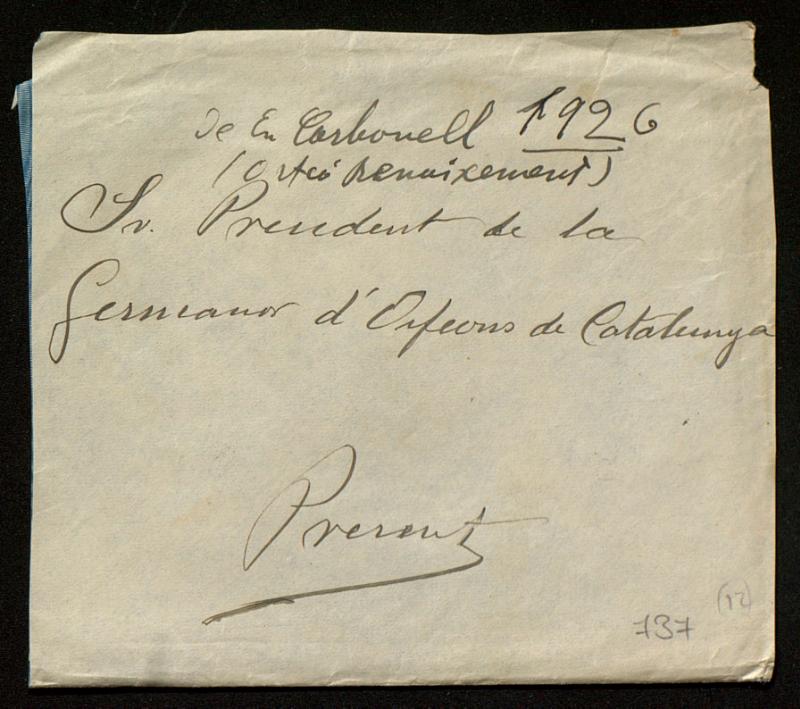 De En Carbonell 1926
(Orfeó Renaixement)
Sr. President de la
Germanor d'Orfeons de Catalunya
Present
(12)
737